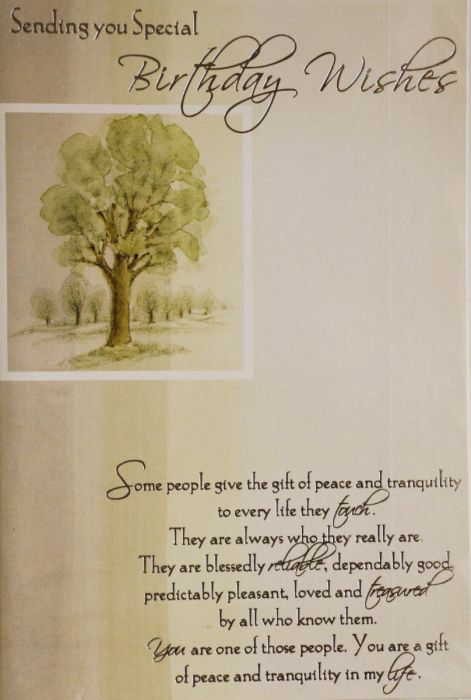 Sending you Special
Birthday Wishes
Some people give the gift of peace and tranquility
to every life they touch.
They are always who they really are.
They are blessedly reliable, dependably good,
predictably pleasant, loved and treasured
by all who know them.
You are one of those people. You are a gift
of peace and tranquility in my life.